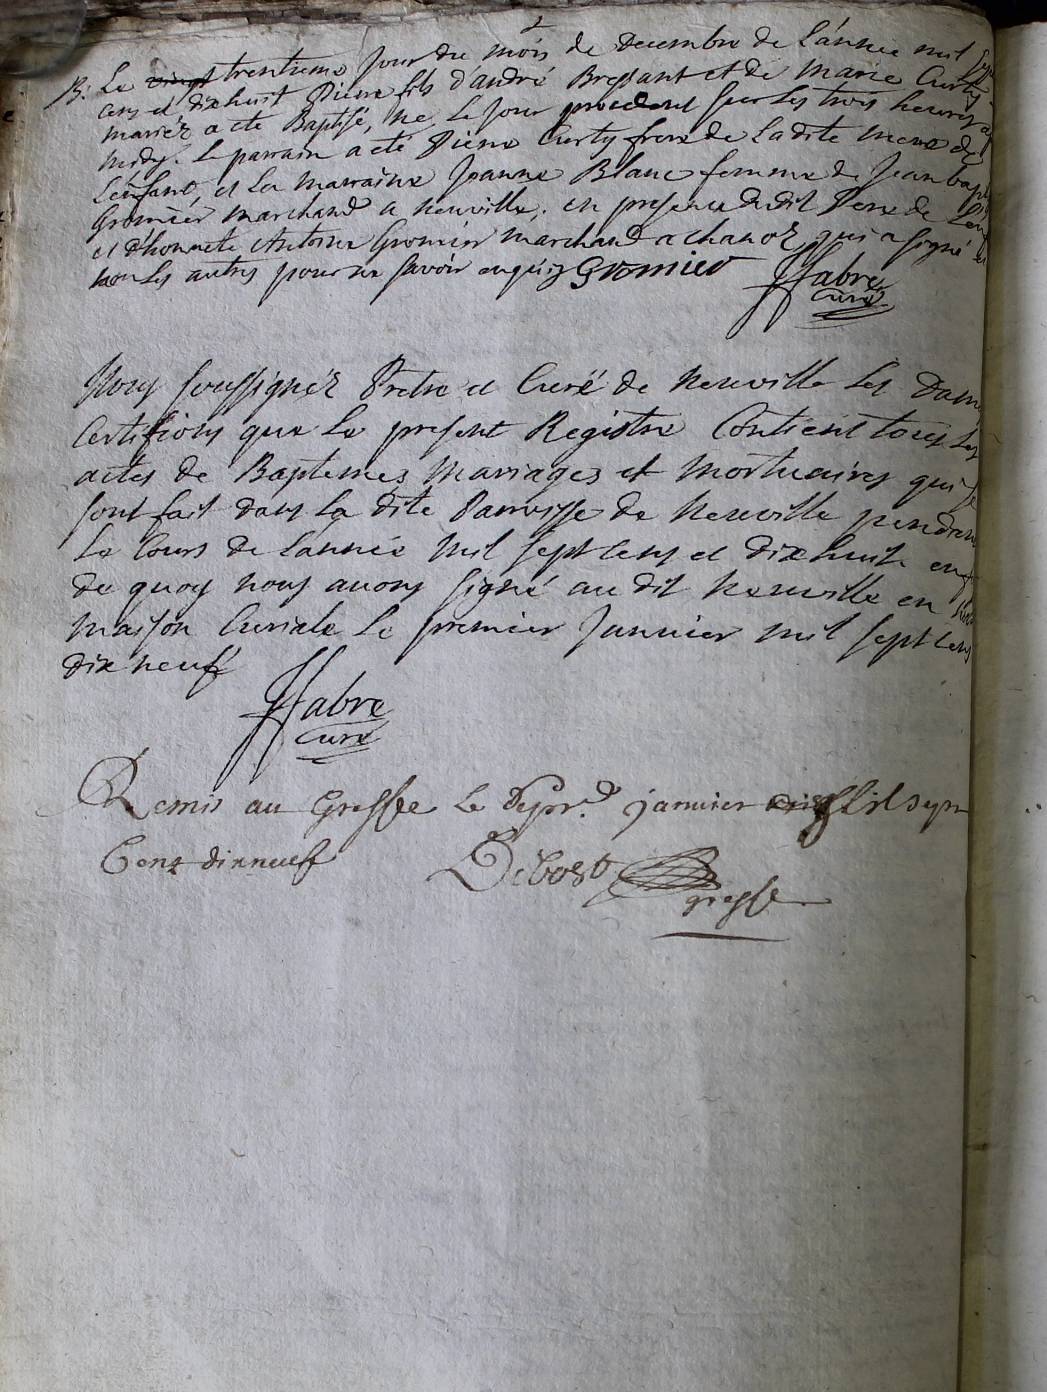 B: Le vingt trentieme Jour du mois de decembre de L'année mil sept
cens et dixhuit Pierre fils d'andré Bressant et de marie Curty
mariéz a eté Baptisé, né Le Jour precedent sur Les trois heures a
midy. Le parrain a eté Pierre Curty frere de La dite mere de
L'enfant, et La marraine Jeanne Blanc femme de Jean bap
Gromier marchand a neuville. en presence dudit Pere de L'enf
et d'honnete Antoine Gromier marchand a chanoz qui a signé et
non Les autres pour ne savoir enquis Gromier
Fabre
curé
Nous soussignéz Pretre et Curé de neuville Les Dames
Certifions que Le present Registre Contient tous Les
actes de Baptemes Mariages et Mortuaires qui se
sont fait dans La dite Parroisse de Neuville pendant
Le Cours de L'année Mil sept cens et dix huit en foy
de quoy nous avons signé au dit Neuville en
Maison Curiale Le premier Janvier mil sept cens
dix neuf
Fabre
curé
Remis au Greffe Le janvier Mil sept
Cens dixneuf Debost
greffe